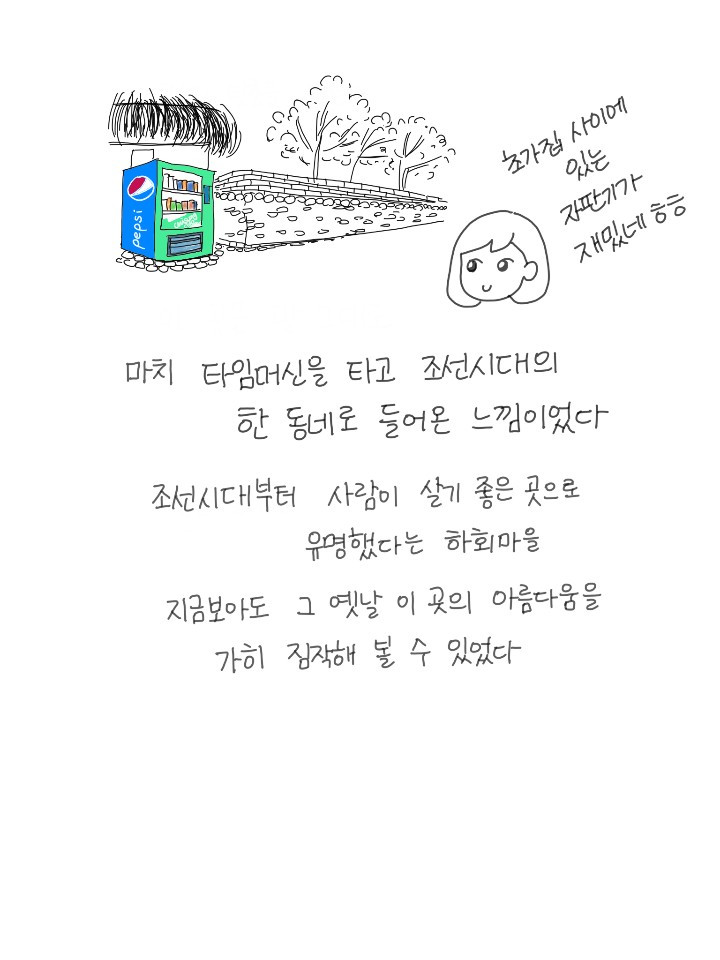 초가집 사이에
있는
자판기가
재밌네 ㅎㅎ
pepsi
마치 타임머신을 타고 조선시대의
한 동네로 들어온 느낌이었다
조선시대부터 사람이 살기 좋은 곳으로
유명했다는 하회마을
지금보아도 그 옛날 이 곳의 아름다움을
가히 짐작해 볼 수 있었다